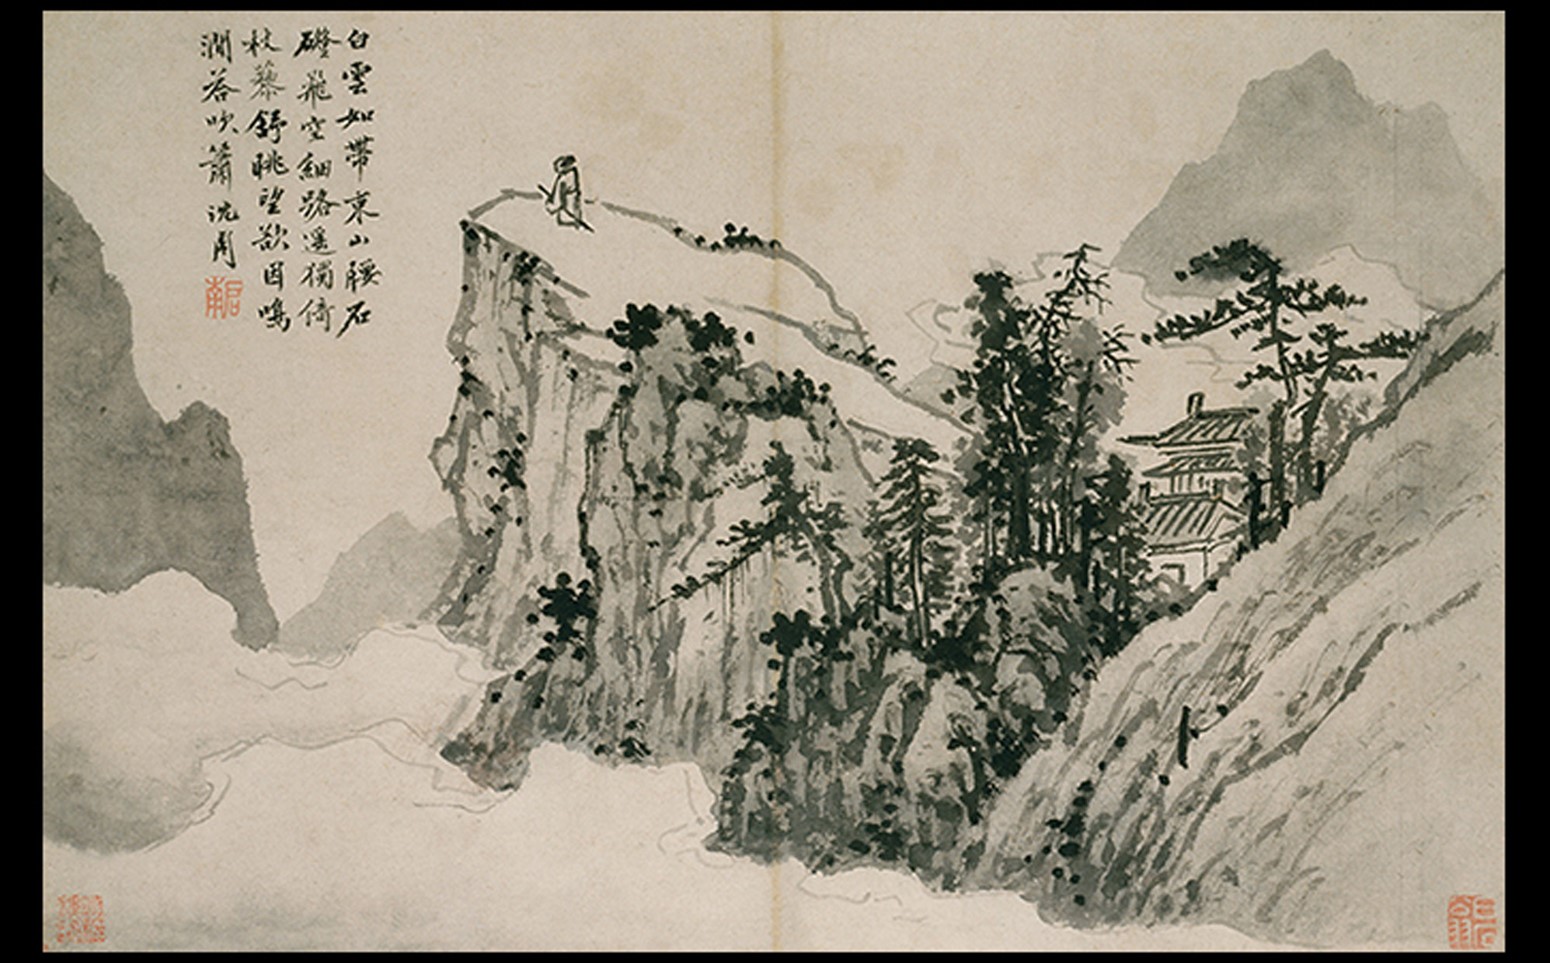 白雲如帶束山腰石
磴飛空細路遙獨倚
杖藜舒眺望欲因鳴
澗答吹簫 沈周